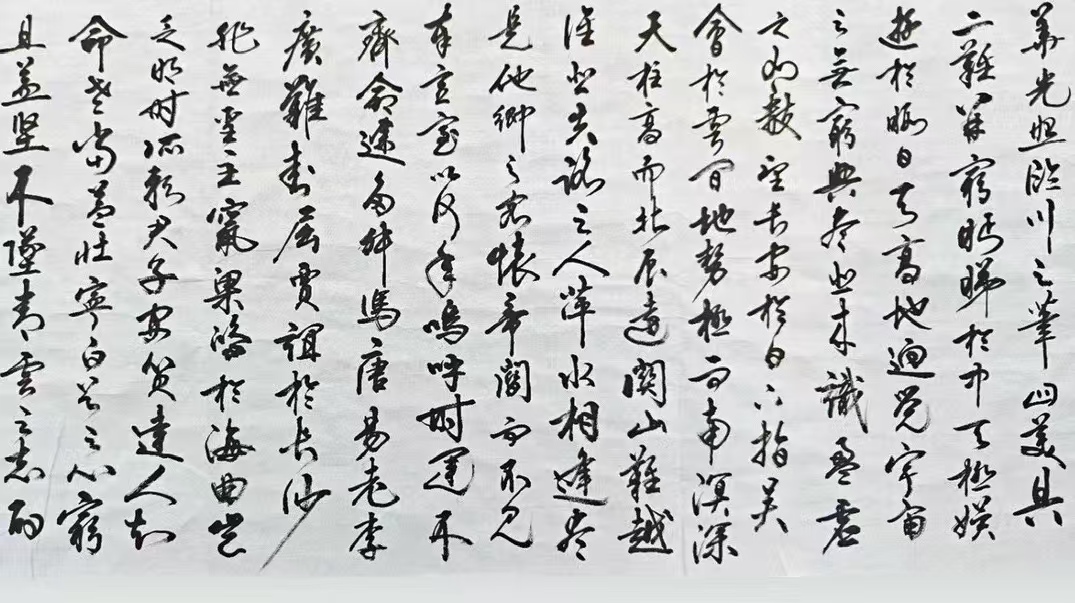 華光照臨川之筆四美具
二難并窮眄睇於中天極娛
遊於暇日天高地迥覺宇宙
之無窮興尽悲来識盈虛
之有數望長安於日下指吳
會於雲間地勢極而南溟深
天柱高而北辰遠關山難越
誰悲失路之人萍水相逢尽
是他鄉之客懷帝閽而不見
奉宣室以何年嗚呼時運不
齊命途多舛馮唐易老李
廣難封屈賈誼於長沙
非無聖主竄梁鴻於海曲豈
乏明時所賴君子安貧達人知
命老當益壯寧白首之心窮
且益坚不墜青雲之志酌